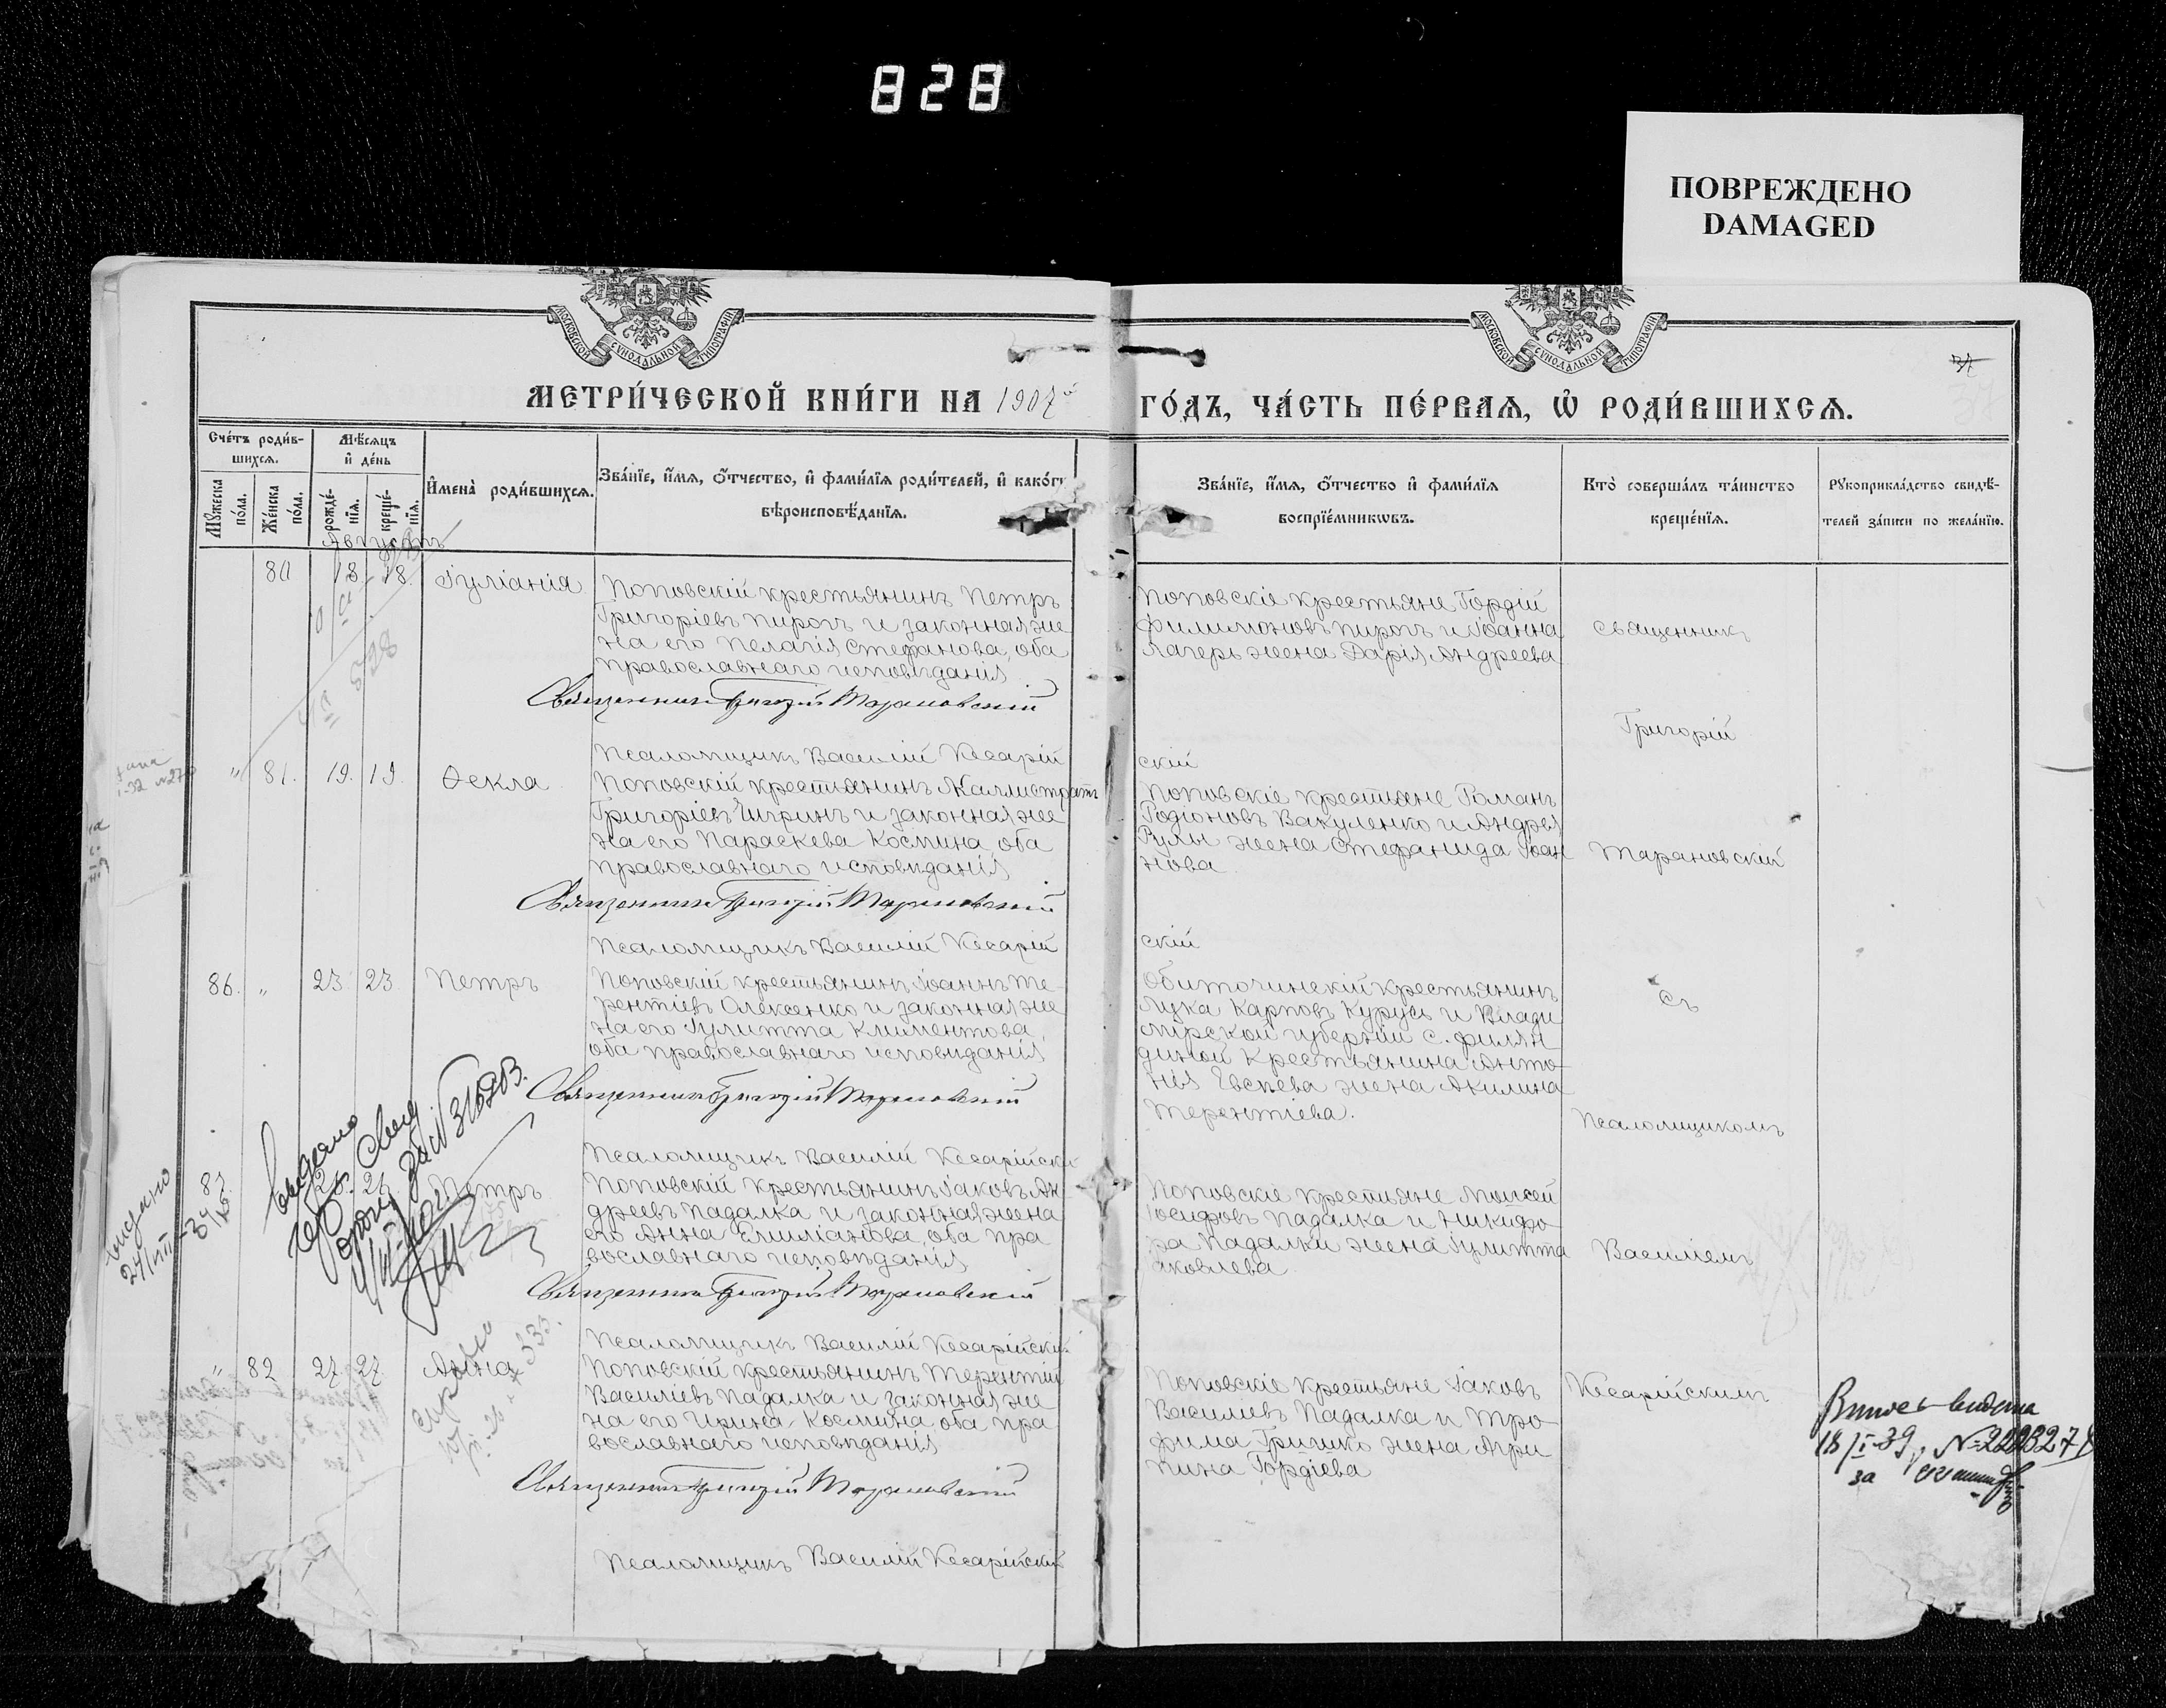 828
ПОВРЕЖДЕНО
DAMAGED
МОСКОВСКОЙ СѴНОДАЛЬНОЙ ТИПОГРАФІИ
МОСКОВСКОЙ СѴНОДАЛЬНОЙ ТИПОГРАФІИ
МЕТРИ́ЧЕСКОЙ КНИ́ГИ НА 1907й ГО́ДЪ, ЧА́СТЬ ПЕ́РВАЯ, Ѽ РОДИ́ВШИХСЯ.
Сче́тъ роди́вшихся.
Мѣ́сяцъ и҆ де́нь
Мꙋ́жеска по́ла.
Же́нска по́ла.
рожде́нїя.
креще́нїя.
И҆мена̀ роди́вшихся.
Зва́нїе, и҆́мя, ѻ҆́тчество, и҆ фами́лїя роди́телей, и҆ како́гѡ
вѣроисповѣ́данїя.
Зва́нїе, и҆́мя, ѻ҆́тчество и҆ фами́лїя
воспрїе́мникѡвъ.
Кто̀ соверша́лъ та́инство
креще́нїя.
Рꙋкоприкла́дство свидѣ́-
телей за́писи по жела́нїю.
Августъ
80 18 18 Іуліанія
Поповскій крестьянинъ Петръ
Григоріевъ Пирогъ и законная же
на его Пелагія Стефанова, оба
православнаго исповѣданія
Священникъ Григорій Тарановскій
Псаломщикъ Василій Кесарій
скій
Поповскіе крестьяне Гордій
Филимоновъ Пирогъ и Іоанна
Лагеръ жена Дарія Андреева
Священникъ
Григорій
" 81. 19. 19. Ѳекла
Поповскій крестьянинъ Каллистратъ
Григоріевъ и законная же
на его Параскева Космина, оба
православнаго исповѣданія
Священникъ Григорій Тарановскій
Псаломщикъ Василій Кесарій
скій
Поповскіе крестьяне Романъ
Родіоновъ Вакуленко и Андрея
Рулы жена Стефанида Іоан
нова
Тарановскій
86. " 23. 23 Петръ
Поповскій крестьянинъ Іоаннъ Те-
рентіевъ Олексенко и законная же
на его Іулитта Климентова,
оба православнаго исповѣданія
Священникъ Григорій Тарановскій
Псаломщикъ Василій Кесарійскій
Обиточинскій крестьянинъ
Лука Карповъ Курусь и Влади
мірской губерніи с. Филян
диной крестьянина Анто-
нія Евсѣева жена Акилина
Терентіева.
съ
Псаломщикомъ
87 26. 26 Петръ
Поповскій крестьянинъ Іаковъ Ан
дреевъ Падалка и законная жена
его Анна Емиліанова, оба пра
вославнаго исповѣданія
Священникъ Григорій Тарановскій
Псаломщикъ Василій Кесарійскій
Поповскіе крестьяне Моисей
Іосифовъ Падалка и Никифо-
ра Падалки жена Іулитта
Іаковлева
Василіемъ
" 82 27. 27. Анна
Поповскій крестьянинъ Терентій
Василіевъ Падалка и законная же
на его Ирина Космина, оба пра
вославнаго исповѣданія
Священникъ Григорій Тарановскій
Псаломщикъ Василій Кесарійскій
Поповскіе крестьяне Іаковъ
Василіевъ Падалка и Тро-
фима Гришко жена Агри
пина Гордіева
Кесарійскимъ
видано